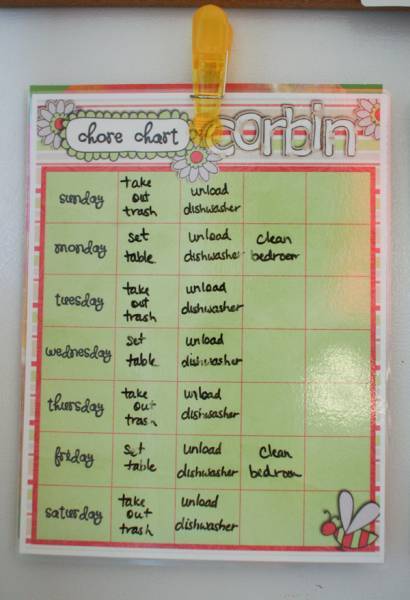 chore chart corbin
sunday take out trash unload dishwasher
monday set table unload dishwasher clean bedroom
tuesday take out trash unload dishwasher
wednesday set table unload dishwasher
thursday take out trash unload dishwasher
friday set table unload dishwasher clean bedroom
saturday take out trash unload dishwasher